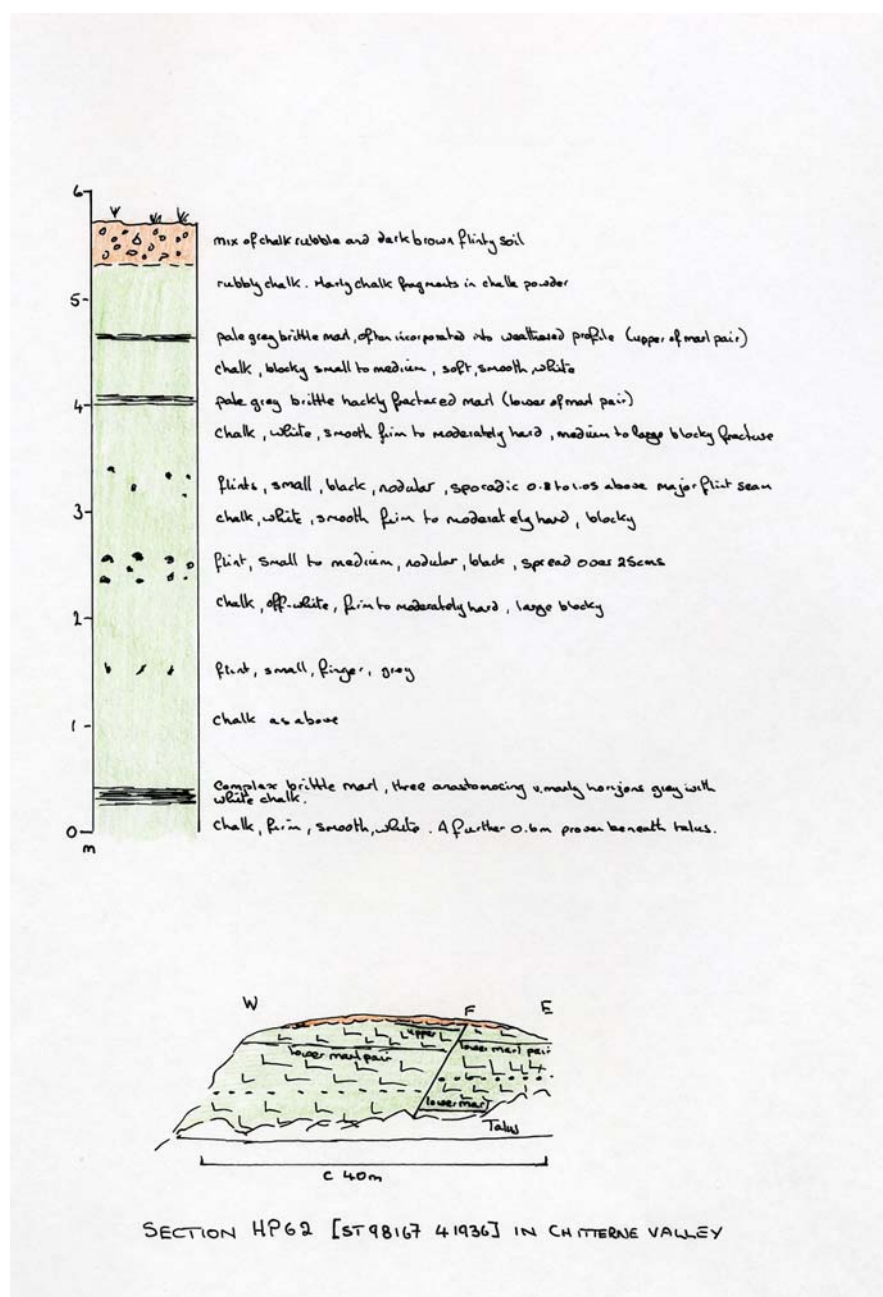 6
mix of chalk rubble and dark brown flinty soil
rubbly chalk. Marly chalk fragments in chalk powder
5
pale grey brittle marl, often incorporated into weathered profile (upper of marl pair)
chalk, blocky small to medium, soft, smooth, white
4
pale grey brittle hackly fractured marl (lower of marl pair)
chalk, white, smooth firm to moderately hard, medium to large blocky fracture
flints, small, black, nodular, sporadic 0.8 to 1.05 above major flint seam
3
chalk, white, smooth firm to moderately hard, blocky
flint, small to medium, nodular, black, spread over 25cms
chalk, off-white, firm to moderately hard, large blocky
2
flint, small, finger, grey
1
chalk as above
Complex brittle marl, three anastomosing v. marly horizons grey with
white chalk.
0
chalk, firm, smooth, white. A further 0.6m proven beneath talus.
m
W F E
upper
lower marl pair
lower marl pair
lower marl
Talus
c 40m
SECTION HP62 [ST 98167 41936] IN CHITTERNE VALLEY